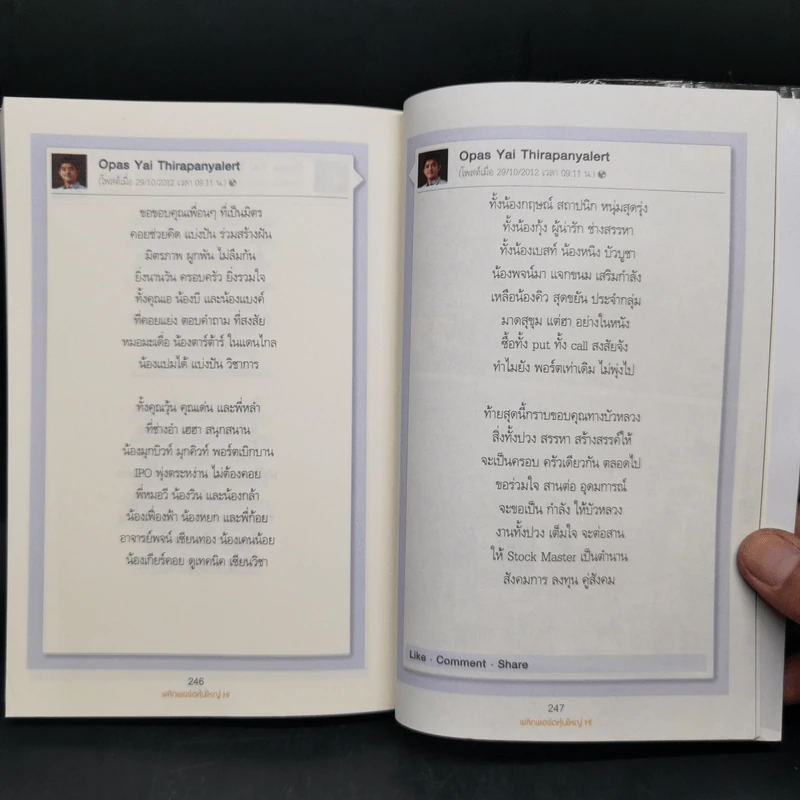 Opas Yai Thirapanyalert
(โพสต์เมื่อ 29/10/2012 เวลา 09:11 น.)
ขอขอบคุณเพื่อนๆ ที่เป็นมิตร
คอยช่วยคิด แบ่งปัน ร่วมสร้างฝัน
มิตรภาพ ผูกพัน ไม่ลืมกัน
ยิ่งนานวัน ครอบครัว ยิ่งรวมใจ
ทั้งคุณเอ น้องบี และน้องแบงค์
ที่คอยแย่ง ตอบคำถาม ที่สงสัย
หมอมะเดื่อ น้องตาร์ต้าร์ ในแดนไกล
น้องแปมได้ แบ่งปัน วิชาการ
ทั้งคุณวุ้น คุณเด่น และพี่หลำ
ที่ช่างอำ เฮฮา สนุกสนาน
น้องมุกบิวท์ มุกคิวท์ พอร์ตเบิกบาน
IPO พุ่งตระหง่าน ไม่ต้องคอย
พี่หมอวี น้องวิน และน้องกล้า
น้องเฟื่องฟ้า น้องหยก และพี่ก้อย
อาจารย์พจน์ เซียนทอง น้องเคนน้อย
น้องเกียร์คอย ดูเทคนิค เซียนวิชา
246
พลิกพอร์ตหุ้นใหญ่ Hi
Opas Yai Thirapanyalert
(โพสต์เมื่อ 29/10/2012 เวลา 09:11 น.)
ทั้งน้องกฤษณ์ สถาปนิก หนุ่มสุดรุ่ง
ทั้งน้องกุ้ง ผู้น่ารัก ช่างสรรหา
ทั้งน้องเบสท์ น้องหนิง บัวบูชา
น้องพจน์มา แจกขนม เสริมกำลัง
เหลือน้องคิว สุดขยัน ประจำกลุ่ม
มาดสุขุม แต่ฮา อย่างในหนัง
ซื้อทั้ง put ทั้ง call สงสัยจัง
ทำไมยัง พอร์ตเท่าเดิม ไม่พุ่งไป
ท้ายสุดนี้กราบขอบคุณทางบัวหลวง
สิ่งทั้งปวง สรรหา สร้างสรรค์ให้
จะเป็นครอบ ครัวเดียวกัน ตลอดไป
ขอร่วมใจ สานต่อ อุดมการณ์
จะขอเป็น กำลัง ให้บัวหลวง
งานทั้งปวง เต็มใจ จะต่อสาน
ให้ Stock Master เป็นตำนาน
สังคมการ ลงทุน คู่สังคม
Like · Comment · Share
247
พลิกพอร์ตหุ้นใหญ่ Hi